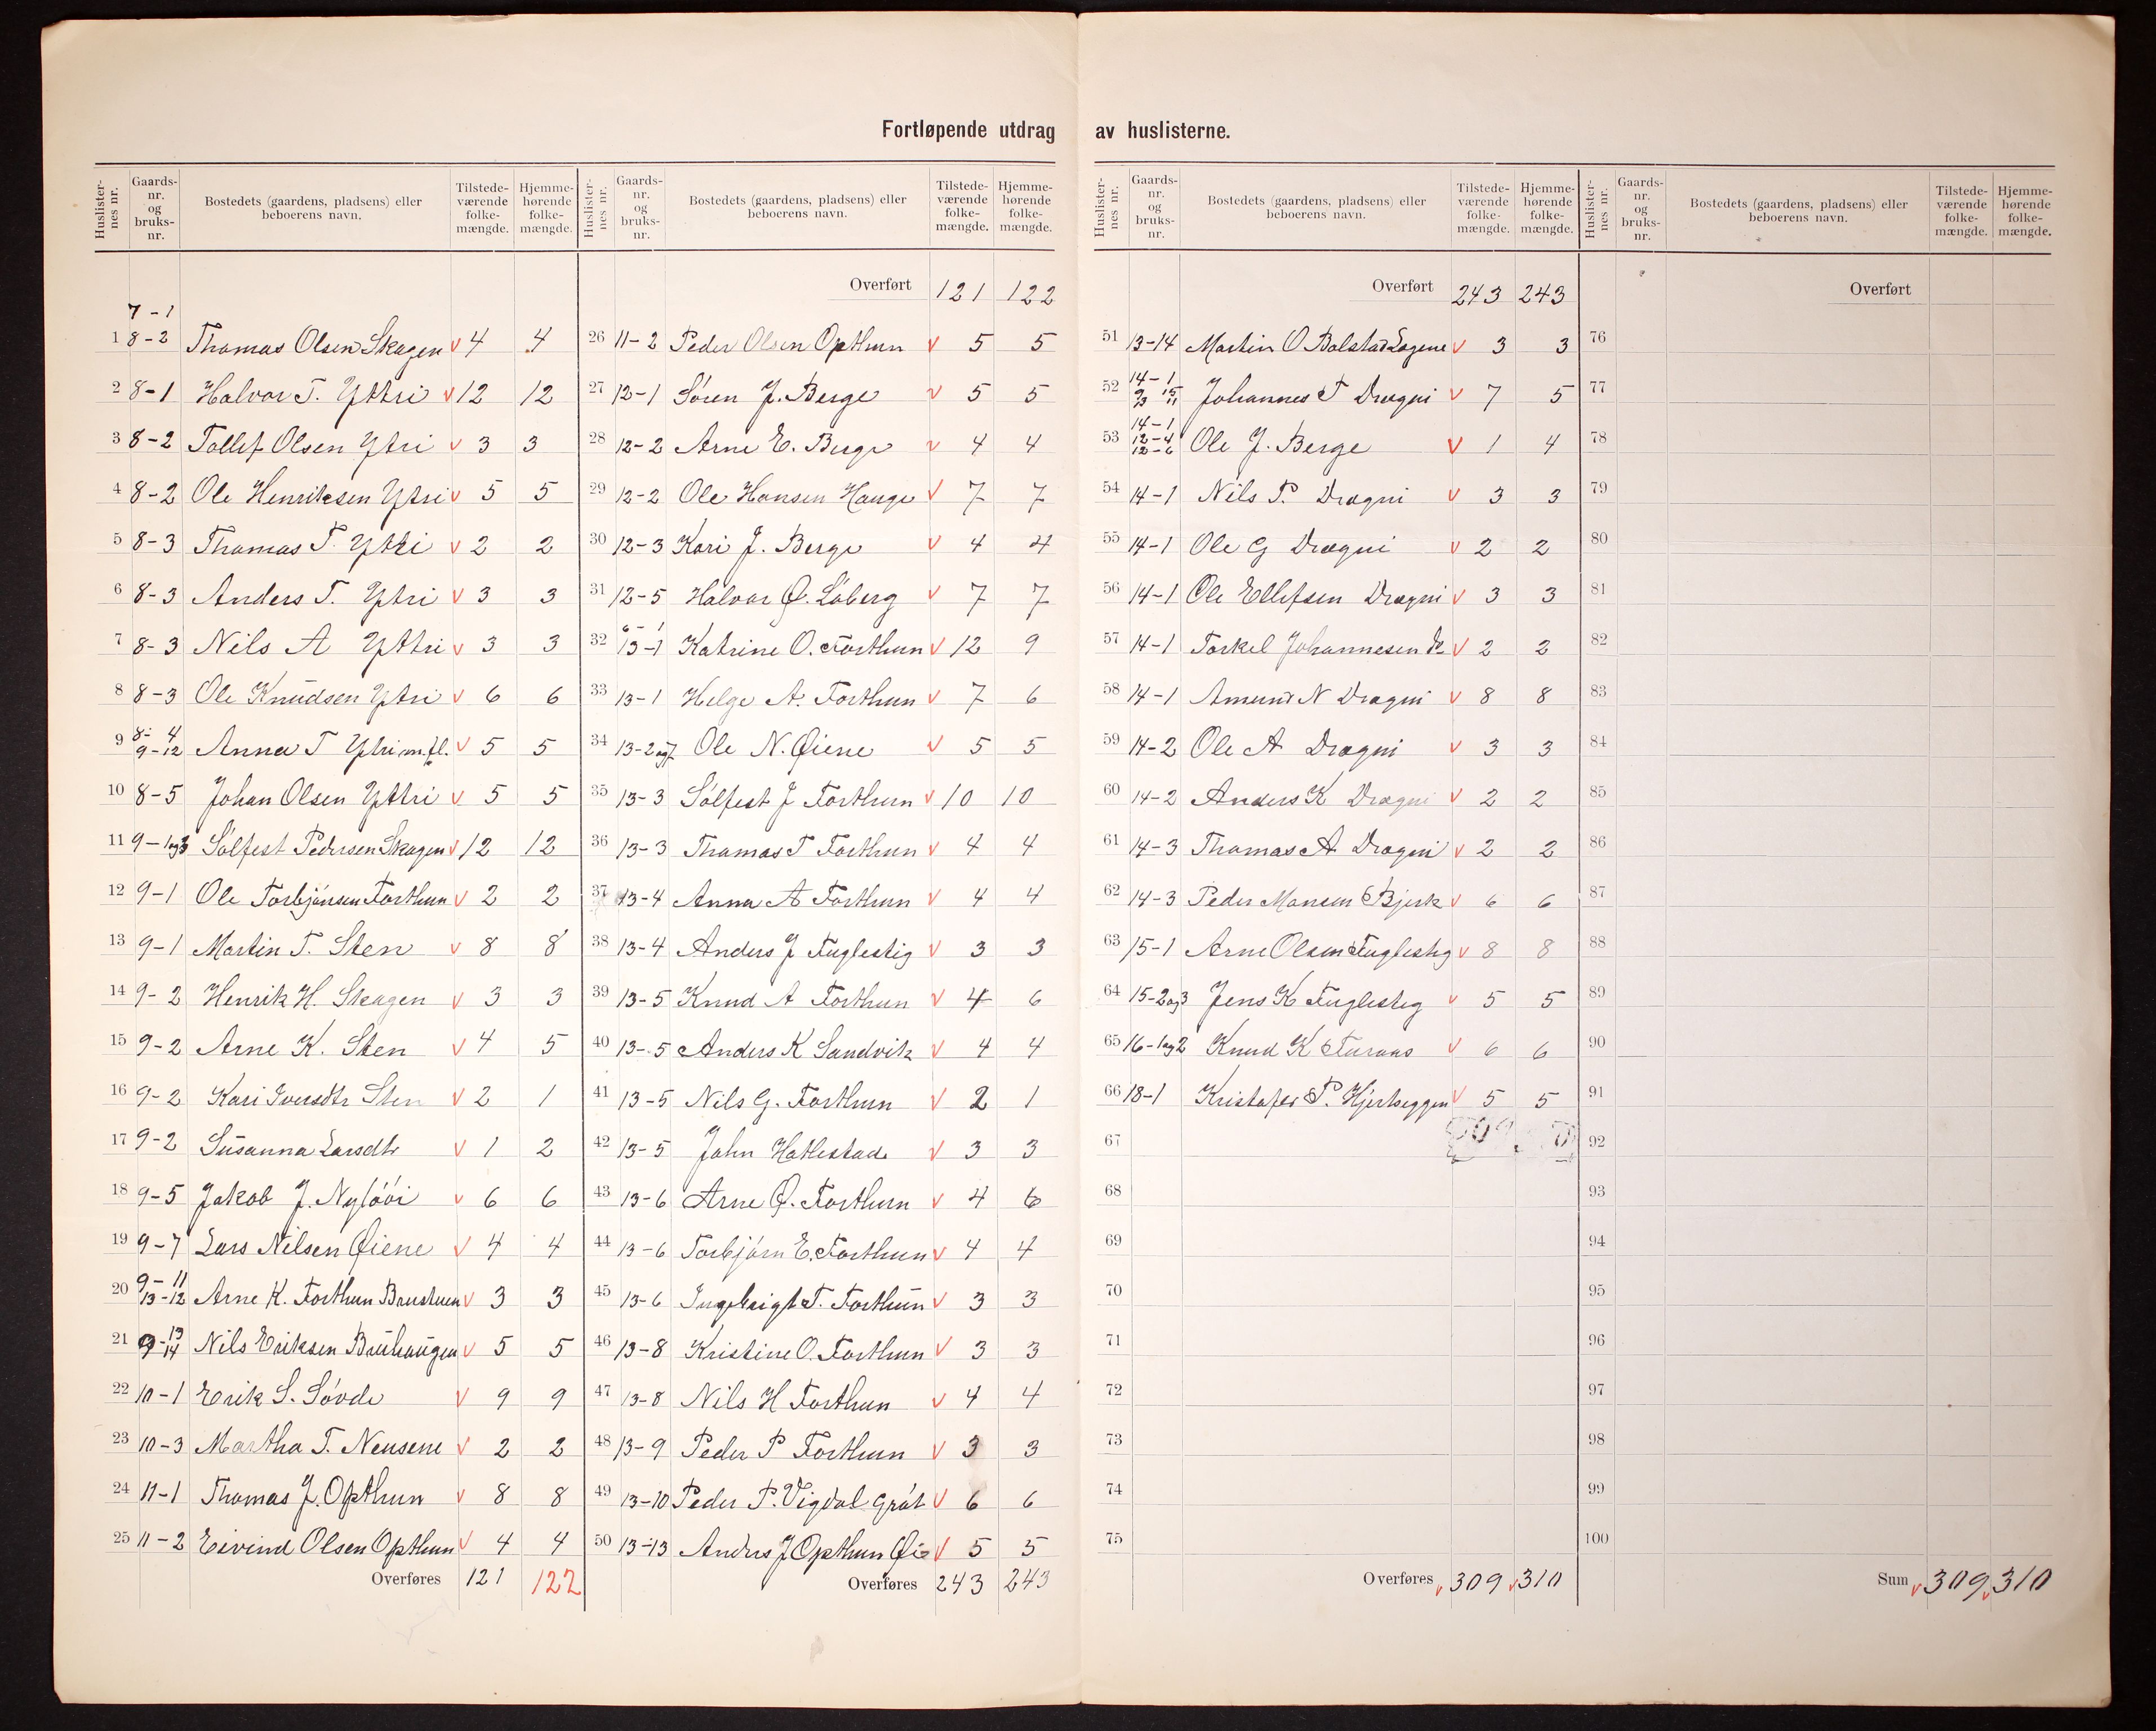 Fortløpende utdrag av huslisterne.
Huslister- nes nr. Gaards- nr. og bruks- nr. Bostedets (gaardens, pladsens) eller beboerens navn. Tilstede- værende folke- mængde. Hjemme- hørende folke- mængde.
7-1
1 8-2 Thomas Olsen Skagen v 4 4
2 8-1 Halvor T. Yttri v 12 12
3 8-2 Tollef Olsen Ytri v 3 3
4 8-2 Ole Henriksen Ytri v 5 5
5 8-3 Thomas T. Yttri v 2 2
6 8-3 Anders T. Yttri v 3 3
7 8-3 Nils A Yttri v 3 3
8 8-3 Ole Knudsen Yttri v 6 6
9 8-4 9-12 Anna T Ytri m.fl. v 5 5
10 8-5 Johan Olsen Yttri v 5 5
11 9-1og3 Sólfest Pedersen Skagen v 12 12
12 9-1 Ole Torbjónsen Forthun v 2 2
13 9-1 Martin T. Sten v 8 8
14 9-2 Henrik H. Skagen v 3 3
15 9-2 Arne K. Sten v 4 5
16 9-2 Kari Iversdtr Sten v 2 1
17 9-2 Susanna Larsdtr v 1 2
18 9-5 Jakob J. Nylóói v 6 6
19 9-7 Lars Nilsen Øiene v 4 4
20 9-11 13-12 Arne K. Forthun Brustuen v 3 3
21 9-13 14 Nils Eriksen Bruhaugen v 5 5
22 10-1 Erik S. Sóvde v 9 9
23 10-3 Martha T. Neusene v 2 2
24 11-1 Thomas J. Opthun v 8 8
25 11-2 Eivind Olsen Opthun v 4 4
Overføres 121 122
Huslister- nes nr. Gaards- nr. og bruks- nr. Bostedets (gaardens, pladsens) eller beboerens navn. Tilstede- værende folke- mængde. Hjemme- hørende folke- mængde.
Overført 121 122
26 11-2 Peder Olsen Opthun v 5 5
27 12-1 Sóren J. Berge v 5 5
28 12-2 Arne E. Berge v 4 4
29 12-2 Ole Hansen Hauge v 7 7
30 12-3 Kari J. Berge v 4 4
31 12-5 Halvor Ø. Lóberg v 7 7
32 6-1 13-1 Katrine O. Forthun v 12 9
33 13-1 Helge A. Forthun v 7 6
34 13-2og7 Ole N. Øiene v 5 5
35 13-3 Sólfest J Forthun v 10 10
36 13-3 Thomas T Forthun v 4 4
37 13-4 Anna A Forthun v 4 4
38 13-4 Anders J Fuglestig v 3 3
39 13-5 Knud A Forthun v 4 6
40 13-5 Anders K Sandvik v 4 4
41 13-5 Nils G. Forthun v 2 1
42 13-5 John Hatlestad v 3 3
43 13-6 Arne Ø. Forthun v 4 6
44 13-6 Torbjórn E. Forthun v 4 4
45 13-6 Ingebrigt T. Forthun v 3 3
46 13-8 Kristine O. Forthun v 3 3
47 13-8 Nils H Forthun v 4 4
48 13-9 Peder P Forthun v 3 3
49 13-10 Peder P. Vigdal Grót v 6 6
50 13-13 Anders J Opthun Øie v 5 5
Overføres 243 243
Huslister- nes nr. Gaards- nr. og bruks- nr. Bostedets (gaardens, pladsens) eller beboerens navn. Tilstede- værende folke- mængde. Hjemme- hørende folke- mængde.
Overført 243 243
51 13-14 Martin O Bolstad v 3 3
52 14-1 Johannes T Drægni v 7 5
14-1
53 12-4 12-6 Ole J. Berge v 1 4
54 14-1 Nils P. Drægni v 3 3
55 14-1 Ole G Drægni v 2 2
56 14-1 Ole Ellefsen Drægni v 3 3
57 14-1 Torkel Johannesen v 2 2
58 14-1 Amund N Drægni v 8 8
59 14-2 Ole A Drægni v 3 3
60 14-2 Anders K Drægni v 2 2
61 14-3 Thomas A Drægni v 2 2
62 14-3 Peder Monsen Bjerk v 6 6
63 15-1 Arne Olsen Fuglesteg v 8 8
64 15-2og3 Jens K Fuglesteg v 5 5
65 16-1og2 Knud K Furaas v 6 6
66 18-1 Kristofer P. Hjerseggen v 5 5
67
68
69
70
71
72
73
74
75
Overføres v 309 v 310
Huslister- nes nr. Gaards- nr. og bruks- nr. Bostedets (gaardens, pladsens) eller beboerens navn. Tilstede- værende folke- mængde. Hjemme- hørende folke- mængde.
Overført
76
77
78
79
80
81
82
83
84
85
86
87
88
89
90
91
92
93
94
95
96
97
98
99
100
Sum v 309 v 310